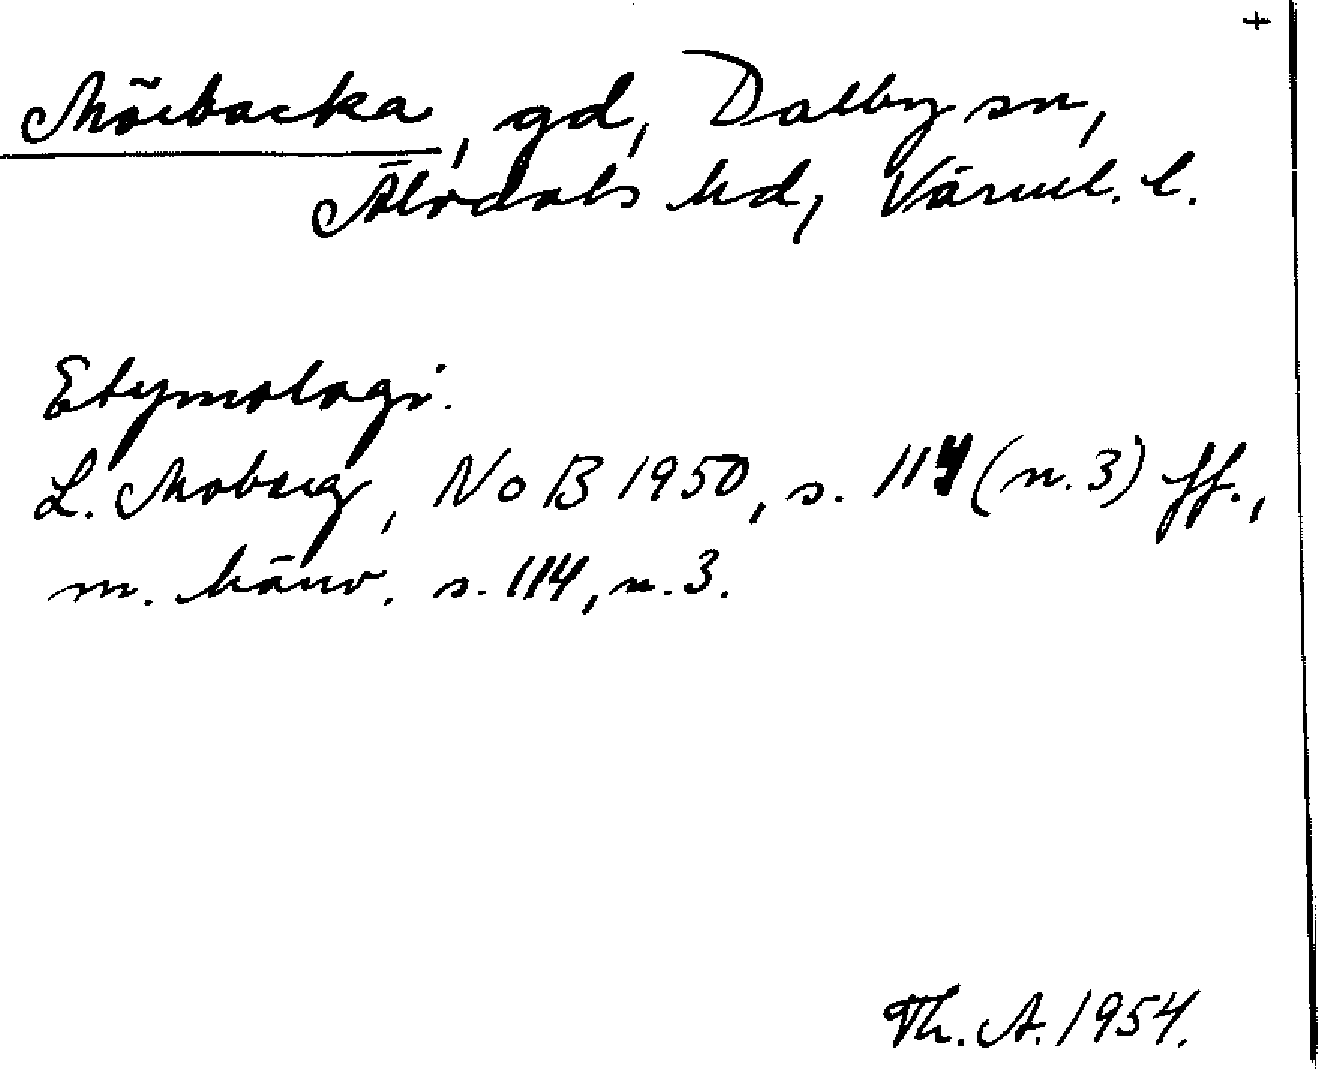 +
Mörbacka, gd, Dalby sn,
Älvdals hd, Värml. l.
Etymologi.
L. Moberg, NoB 1950, s. 114 (n. 3) ff.,
m. hänv. s. 114, n. 3.
Th. A. 1954.